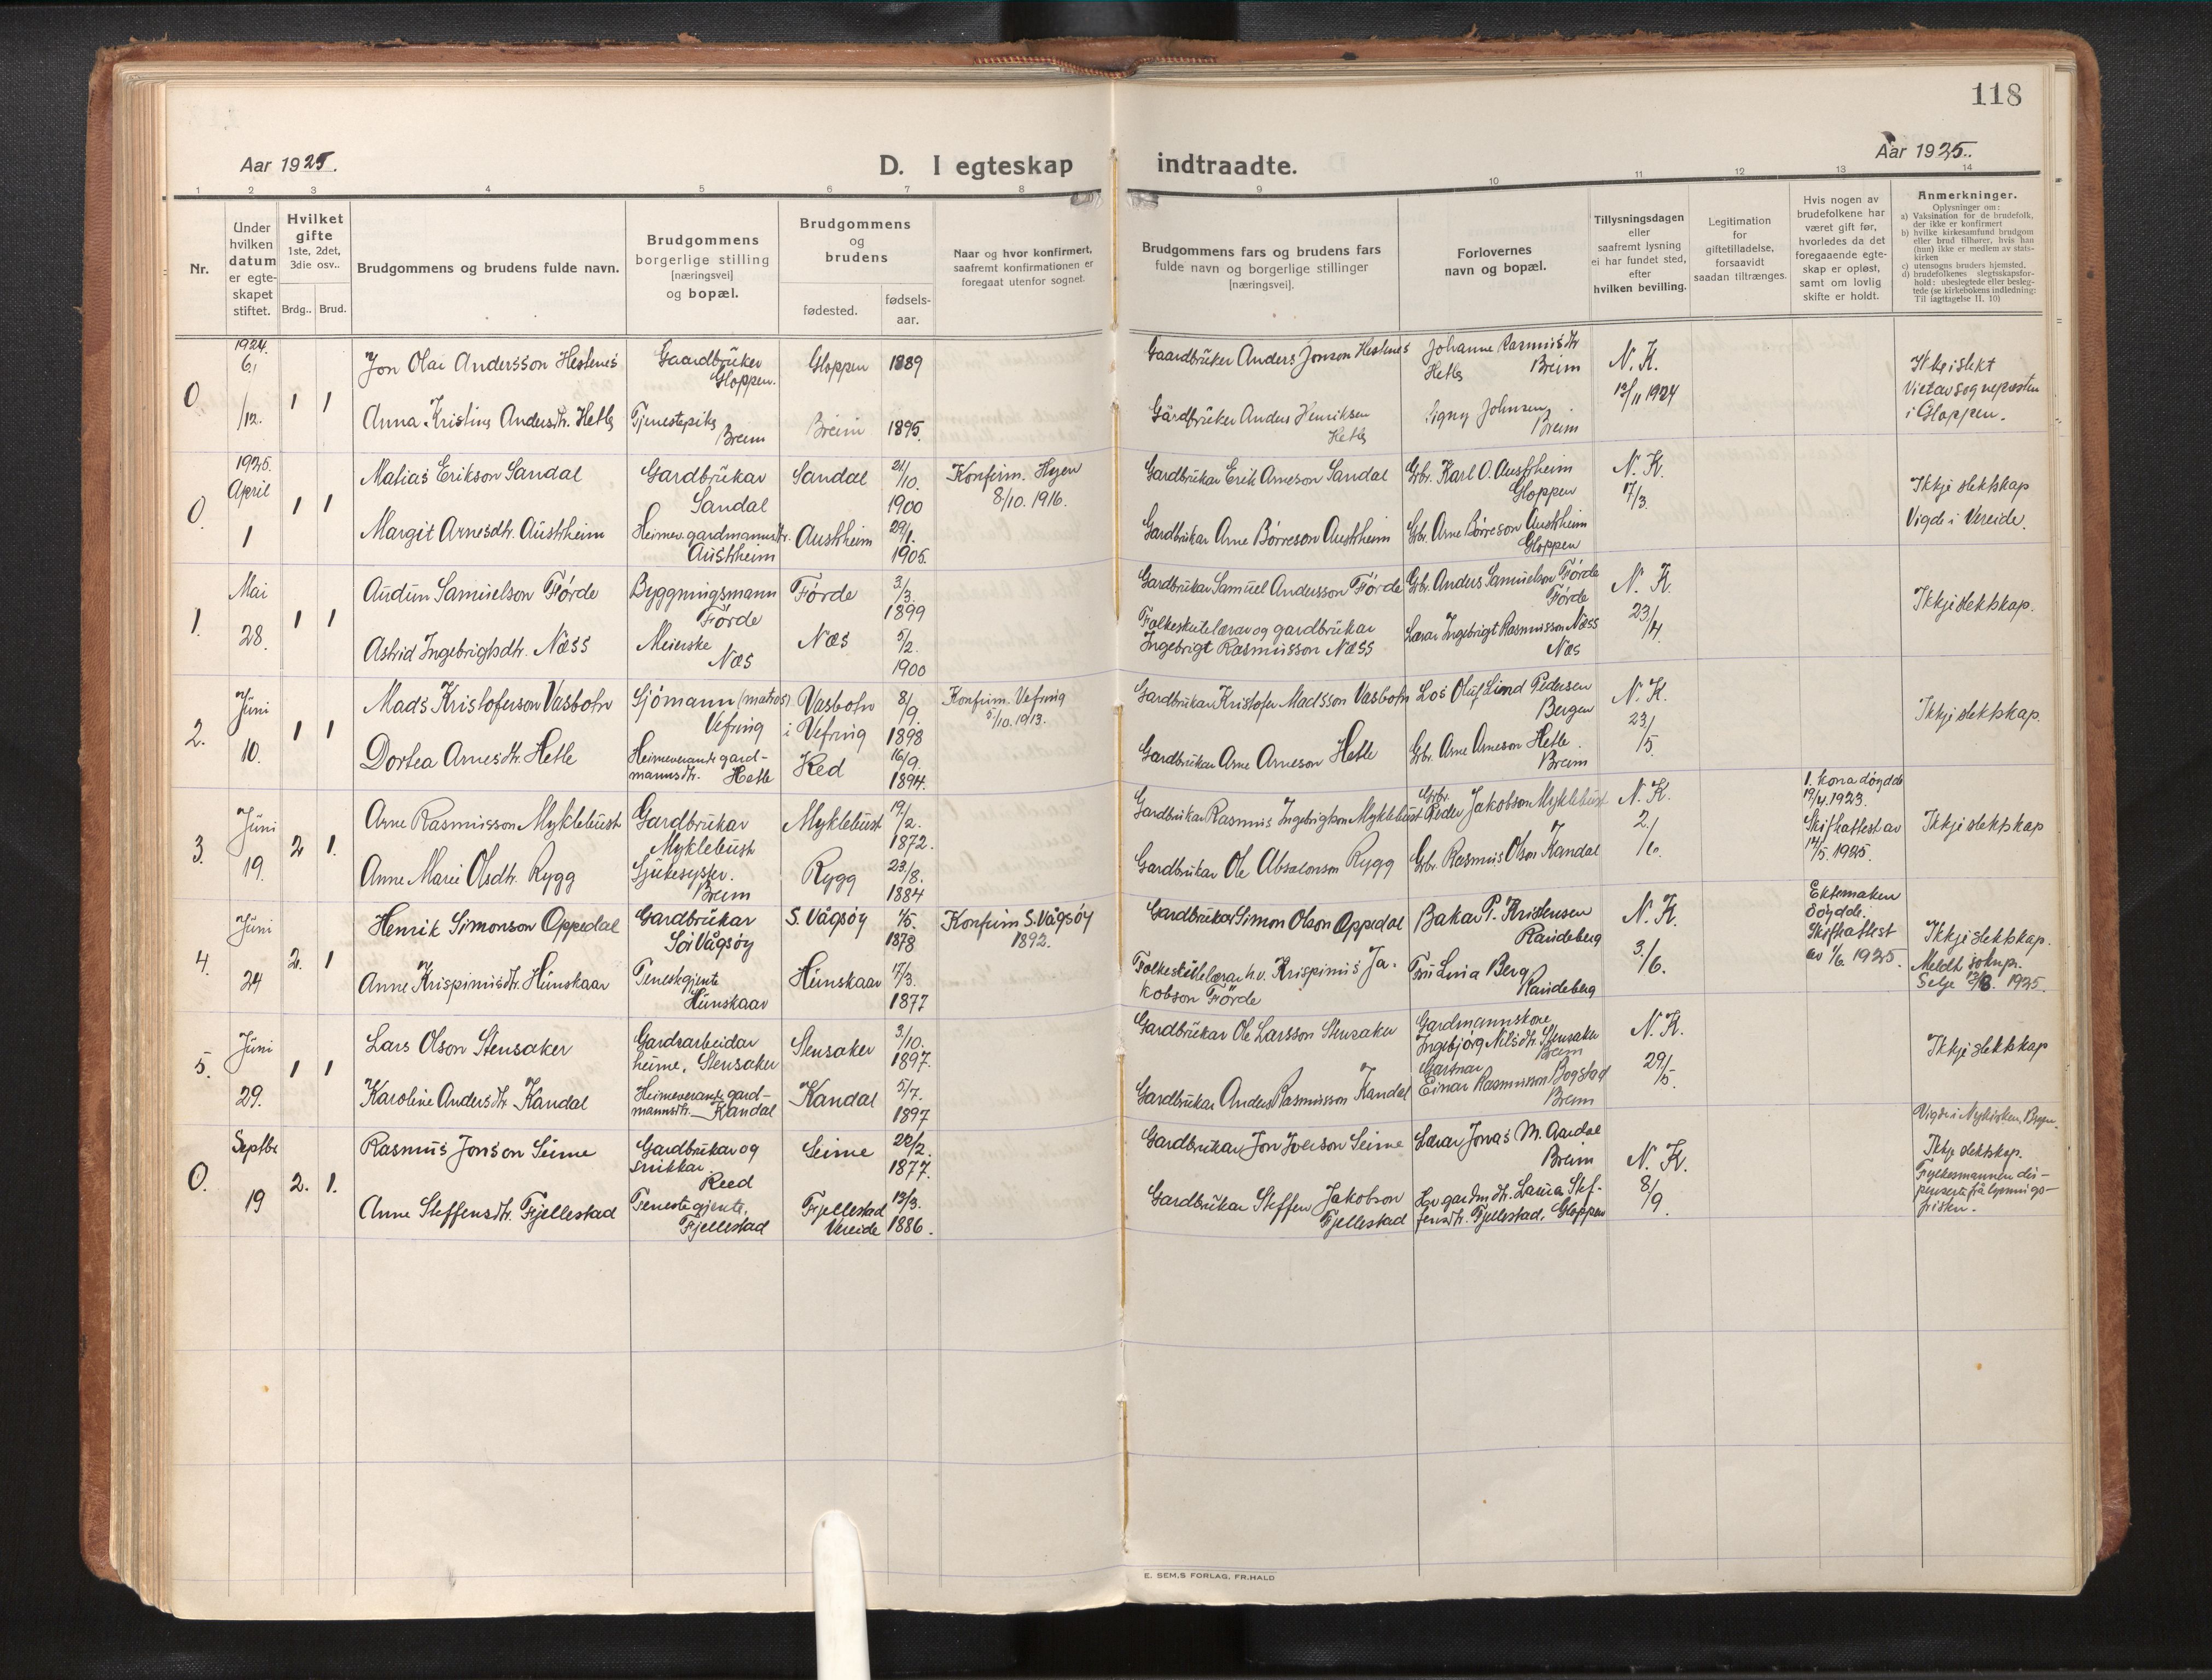 118
Aar 1925.
D. I egteskap indtraadte.
Aar 1925.
1 2 3 4 5 6 7 8 9 10 11 12 13 14
Nr.
Under hvilken datum er egte-skapet stiftet.
Hvilket gifte 1ste, 2det, 3die osv..
Brdg.. Brud.
Brudgommens og brudens fulde navn.
Brudgommens borgerlige stilling [næringsvei] og bopæl.
Brudgommens og brudens
fødested.
fødsels-aar.
Naar og hvor konfirmert, saafremt konfirmationen er foregaat utenfor sognet.
Brudgommens fars og brudens fars fulde navn og borgerlige stillinger [næringsvei].
Forlovernes navn og bopæl.
Tillysningsdagen eller saafremt lysning ei har fundet sted, efter hvilken bevilling.
Legitimation for giftetilladelse, forsaavidt saadan tiltrænges.
Hvis nogen av brudefolkene har været gift før, hvorledes da det foregaaende egte-skap er opløst, samt om lovlig skifte er holdt.
Anmerkninger.
Oplysninger om:
a) Vaksination for de brudefolk, der ikke er konfirmert
b) hvilke kirkesamfund brudgom eller brud tilhører, hvis han (hun) ikke er medlem av stats-kirken
c) utensogns bruders hjemsted.
d) brudefolkenes slegtsskapsfor-hold: ubeslegtede eller besleg-tede (se kirkebokens indledning: Til iagttagelse II. 10)
0. 1924. 6./12. 1 1
Jon Olai Andersson Hestenes
Gaardbruker Gloppen.
Gloppen 1889
Gaardbruker Anders Jonson Hestenes
Johanne Rasmusdtr Hetle Breim
N. K. 12/11 1924
Ikke i slekt
Viet av sognepresten
i Gloppen.
Anna Kristine Andersdtr. Hetle
Tjenestepike Breim
Breim 1895.
Gårdbruker Anders Henriksen Hetle
Signy Johnsen, Breim
0. 1925. April 1 1 1
Matias Erikson Sandal
Gardbrukar Sandal
Sandal 21/10. 1900
Konfirm. Hyen 8/10. 1916.
Gardbrukar Erik Arneson Sandal
Gbr. Karl O. Austrheim Gloppen
N. K. 17/3.
Ikkje slektskap
Vigde i Vereide.
Margit Arnesdtr. Austrheim
Heimev. gardmannsdtr. Austrheim
Austrheim 29/1. 1905.
Gardbrukar Arne Börreson Austrheim
Gbr. Arne Börreson Austrheim Gloppen
1. Mai 28. 1 1
Audun Samuelson Förde
Byggningsmann Förde
Förde 3./3. 1899
Gardbrukar Samuel Andersson Förde
Gbr. Anders Samuelson Förde Förde
N. K. 23/4
Ikkje slektskap.
Astrid Ingebrigtsdtr. Næss
Meierske Næs
Næs 5/2. 1900
Folkeskulelærar og gardbrukar
Ingebrigt Rasmusson Næss
Lærar Ingebrigt Rasmusson Næss Næs
2. Juni 10. 1 1
Mads Kristoferson Vasbotn
Sjömann (matros). Vefring
Vasbotn i Vefring 8/9. 1898
Konfirm. Vefring 5/10. 1913.
Gardbrukar Kristofer Madsson Vasbotn
Los Oluf Lind Pedersen Bergen
N. K. 23/5
Ikkje slektskap.
Dortea Arnesdtr. Hetle
Heimeverande gard-
mannsdtr. Hetle
Red 16/9. 1894.
Gardbrukar Arne Arneson Hetle
Gbr. Arne Arneson Hetle. Breim
3. Juni 19. 2 1.
Arne Rasmusson Myklebust
Gardbrukar Myklebust
Myklebust 19/2. 1872.
Gardbrukar Rasmus Ingebrigtson Myklebust
Gbr. Peder Jakobson Myklebust
N. K. 2./6.
1. kona döydde
19/4. 1923.
Skiftattest av
14/5. 1925.
Ikkje slektskap
Anne Marie Olsdtr. Rygg
Sjukesyster. Breim
Rygg 23/8. 1884
Gardbrukar Ole Absalonson Rygg
Gbr. Rasmus Olson Kandal
4. Juni 24 2. 1
Henrik Simonson Oppedal
Gardbrukar Sör Vågsöy
S. Vågsöy 1/5. 1878
Konfirm S. Vågsöy 1892.
Gardbrukar Simon Olson Oppedal
Bakar P. Kristensen Raudeberg
N. K. 3./6.
Ektemaken
döydde.
Skiftattest
av 1/6. 1925.
Ikkje slektskap.
Meldt soknpr.
Selje 12/8. 1925.
Anne Krispinusdtr. Hunskaar
Tenestgjente Hunskaar
Hunskaar 17/3. 1877
Folkeskulelærar h.v. Krispinus Ja-
kobson Förde
Fru Lovia Berg Raudeberg
5. Juni 29. 1 1
Lars Olson Stensaker
Gardsarbeidar
heime, Stensaker
Stensaker 3/10. 1897.
Gardbrukar Ole Larsson Stensaker
Gardmannskone
Ingebjörg Nilsdtr. Stensaker Breim
N. K. 29/5.
Ikkje slektskap
Karoline Andersdtr. Kandal
Heimeverande gard-
mannsdtr. Kandal
Kandal 5/7. 1897
Gardbrukar Anders Rasmusson Kandal
Gartnar
Einar Rasmusson Bogstad Breim
0. Septbr 19 2. 1.
Rasmus Jonson Seime
Gardbrukar og
snikkar. Reed
Seime 22/2. 1877.
Gardbrukar Jon Joenson Seime
Lærar Jonas M. Aardal Breim
N. K. 8/9.
Vigde i Nykirken, Bergen.
Ikkje slektskap.
Fylkesmannen dis-
pensert frå lysnings-
fristen.
Anne Steffensdtr. Fjellestad
Tenestegjente, Fjellestad
Fjellestad Vereide 13/3. 1886.
Gardbrukar Steffen Jakobson Fjellestad
gardmdtr. Laura Stef-
fensdtr. Fjellestad, Gloppen
E. SEM,S FORLAG, FR.HALD